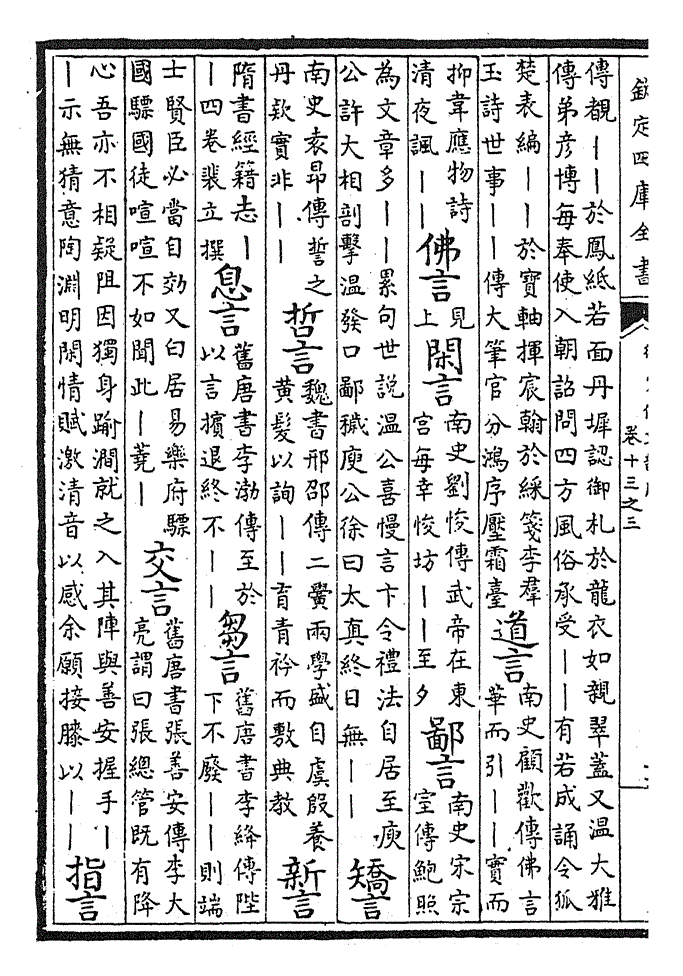 欽定四庫全書
卷十三之三
傳覩——於鳳紙若面丹墀認御札於龍衣如親翠蓋又溫大雅
傳弟彥博每奉使入朝詔問四方風俗承受——有若成誦令狐
楚表編——於寶軸揮宸翰於綵箋李羣
玉詩世事——傳大筆官分鴻序壓霜臺
道言
南史顧歡傳佛言
華而引——實而
抑韋應物詩
清夜諷——
佛言
見
上
閑言
南史劉悛傳武帝在東
宮每幸悛坊——至夕
鄙言
南史宋宗
室傳鮑照
為文章多——累句世說溫公喜慢言卞令禮法自居至庾
公許大相剖擊溫發口鄙穢庾公徐曰太真終日無——
矯言
南史袁昂傳誓之
丹欵實非——
哲言
魏書邢邵傳二黌兩學盛自虞殷養
黄髮以詢——育青衿而敷典教
新言
隋書經籍志—
—四卷裴立撰
息言
舊唐書李渤傳至於
以言擯退終不——
芻言
舊唐書李絳傳陛
下不廢——則端
士賢臣必當自効又曰居易樂府驃
國驃國徒喧喧不如聞此—蕘—
交言
舊唐書張善安傳李大
亮謂曰張總管既有降
心吾亦不相疑阻因獨身踰澗就之入其陣與善安握手—
—示無猜意陶淵明閑情賦激清音以感余願接膝以——
指言